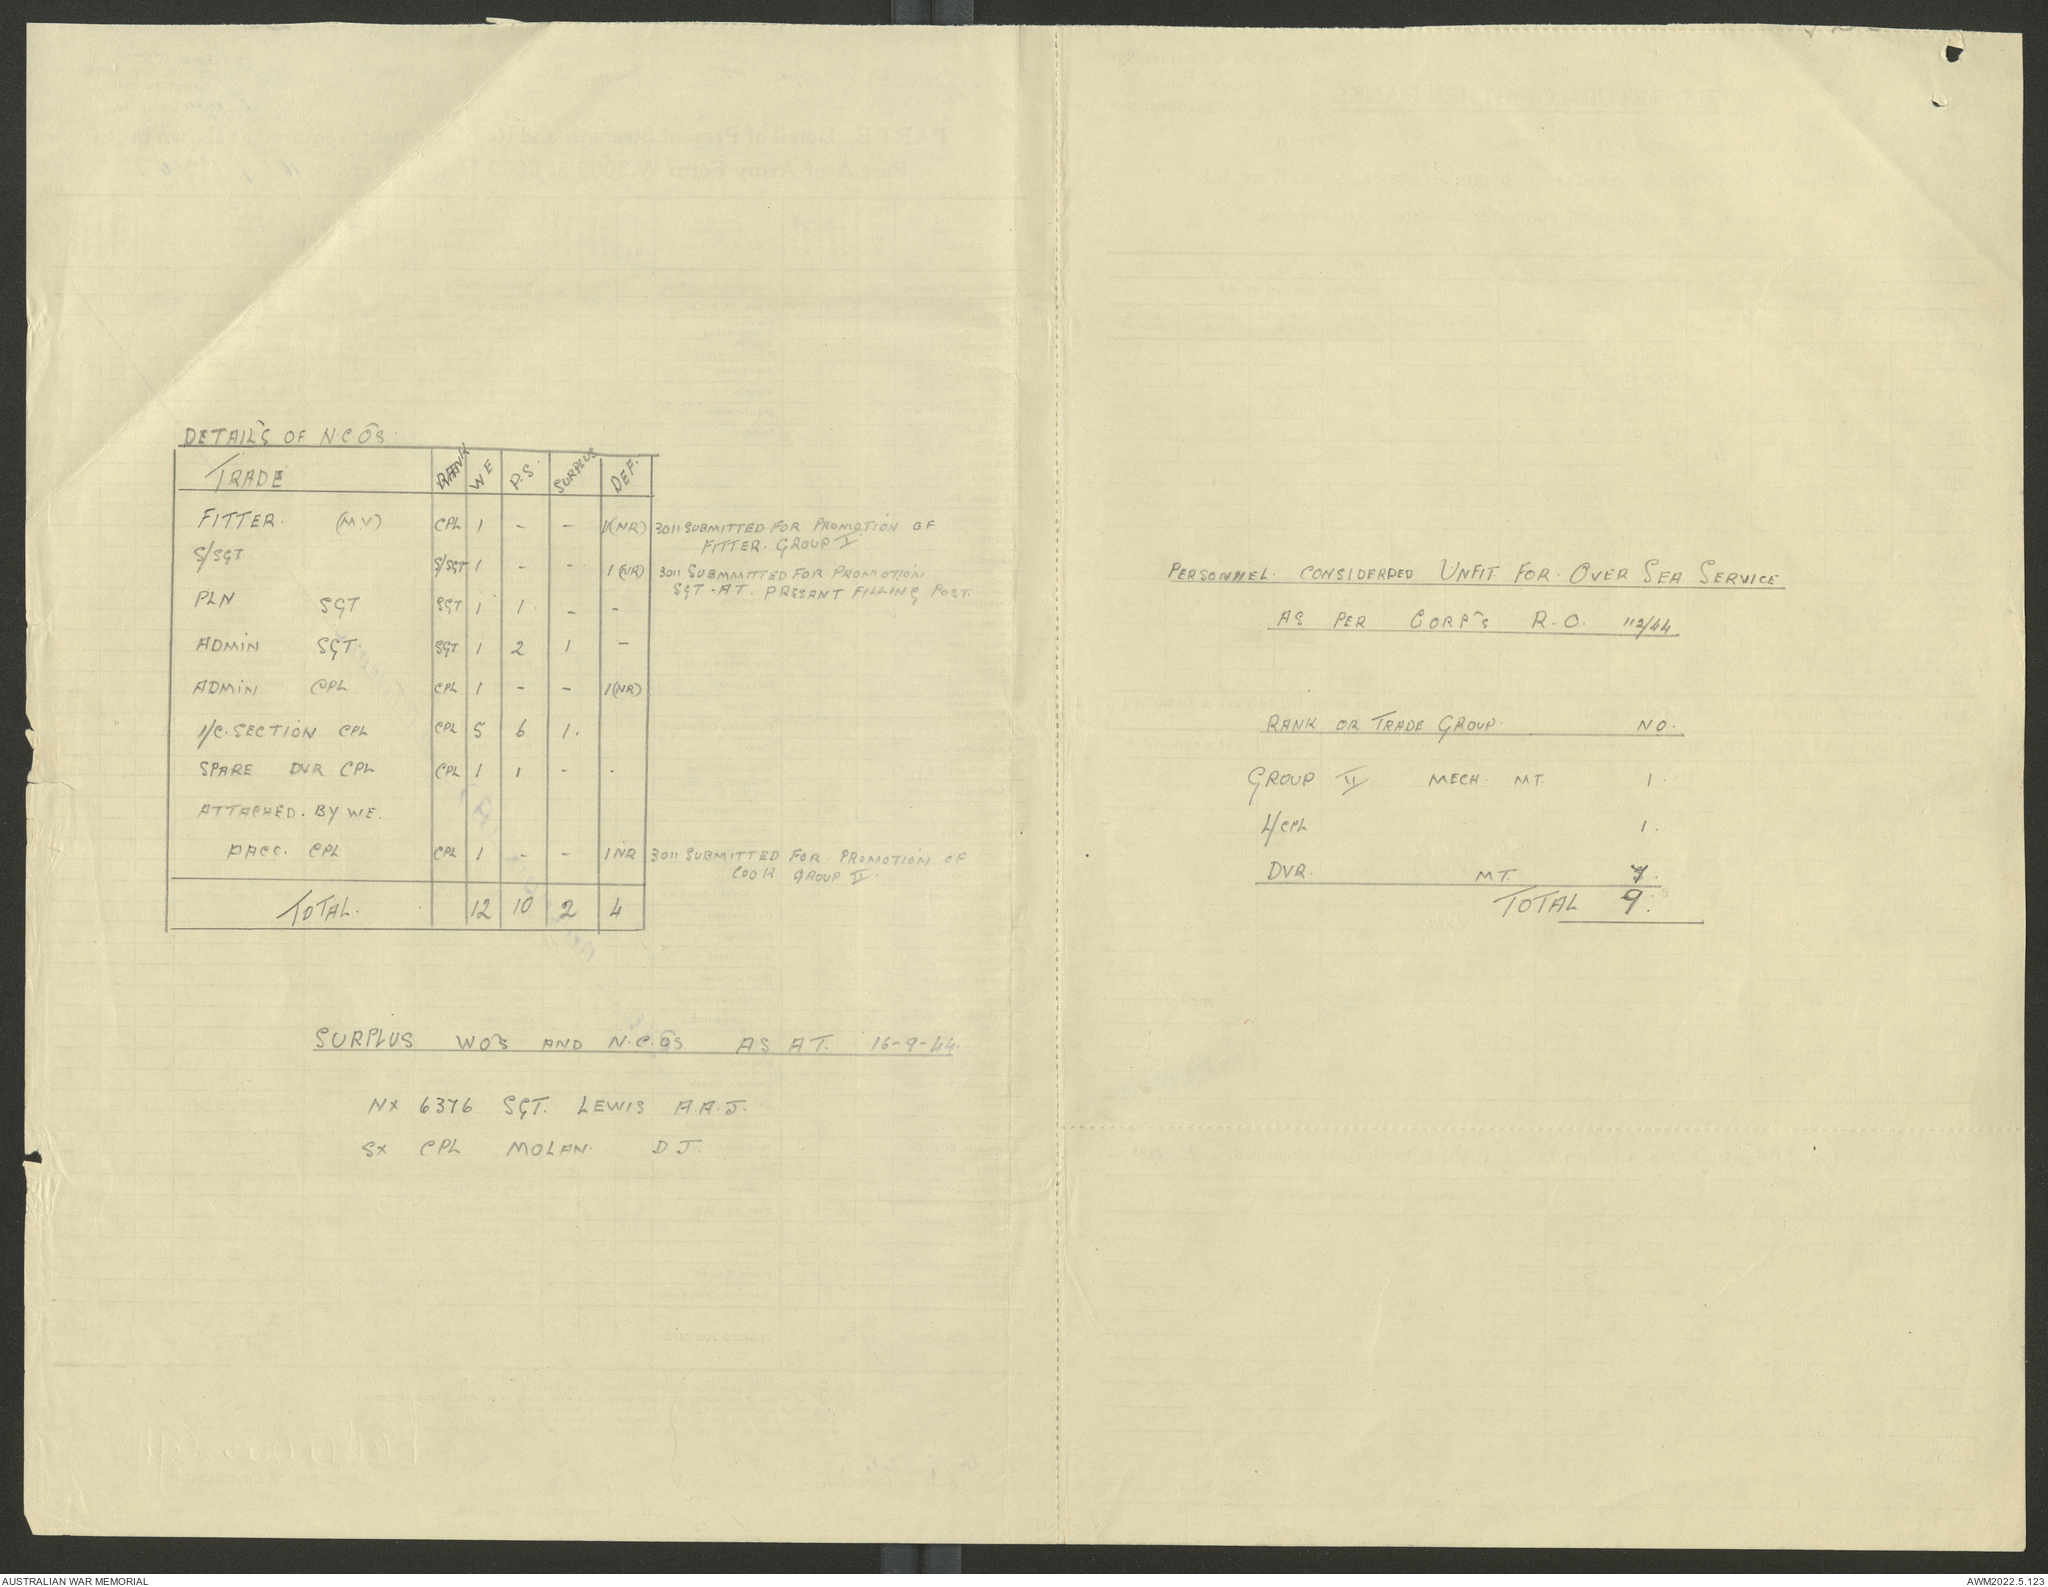 DETAIL'S OF N.C.O'S.
TRADE RANK WE P.S. SURPLUS DEF.
FITTER. (M.V) CPL 1 - - 1(NR) 3011 SUBMITTED FOR PROMOTION OF
FITTER. GROUP II
S/SGT S/SGT 1 - - 1(NR) 3011 SUBMMITTED FOR PROMOTION
SGT - AT. PRESANT FILLING POST.
PLN SGT SGT 1 1 - -
ADMIN SGT. SGT 1 2 1 -
ADMIN CPL CPL 1 - - 1(NR)
I/C. SECTION CPL CPL 5 6 1.
SPARE DVR CPL CPL 1 1 - -
ATTACHED. BY WE.
AACC. CPL CPL 1 - - 1 NR 3011 SUBMITTED FOR. PROMOTION OF
COOK GROUP II.
TOTAL. 12 10 2 4
SURPLUS WO'S AND N.C.O'S AS AT. 16-9-44.
NX 6376 SGT. LEWIS A.A.J.
SX CPL MOLAN. D J.
PERSONNEL. CONSIDERDED UNFIT FOR. OVER SEA SERVICE
AS PER CORP'S R.O. 112/44
RANK OR TRADE GROUP. NO.
GROUP II MECH. MT. 1.
L/CPL 1.
DVR. MT. 7.
TOTAL 9.
AUSTRALIAN WAR MEMORIAL
AWM2022.5.123